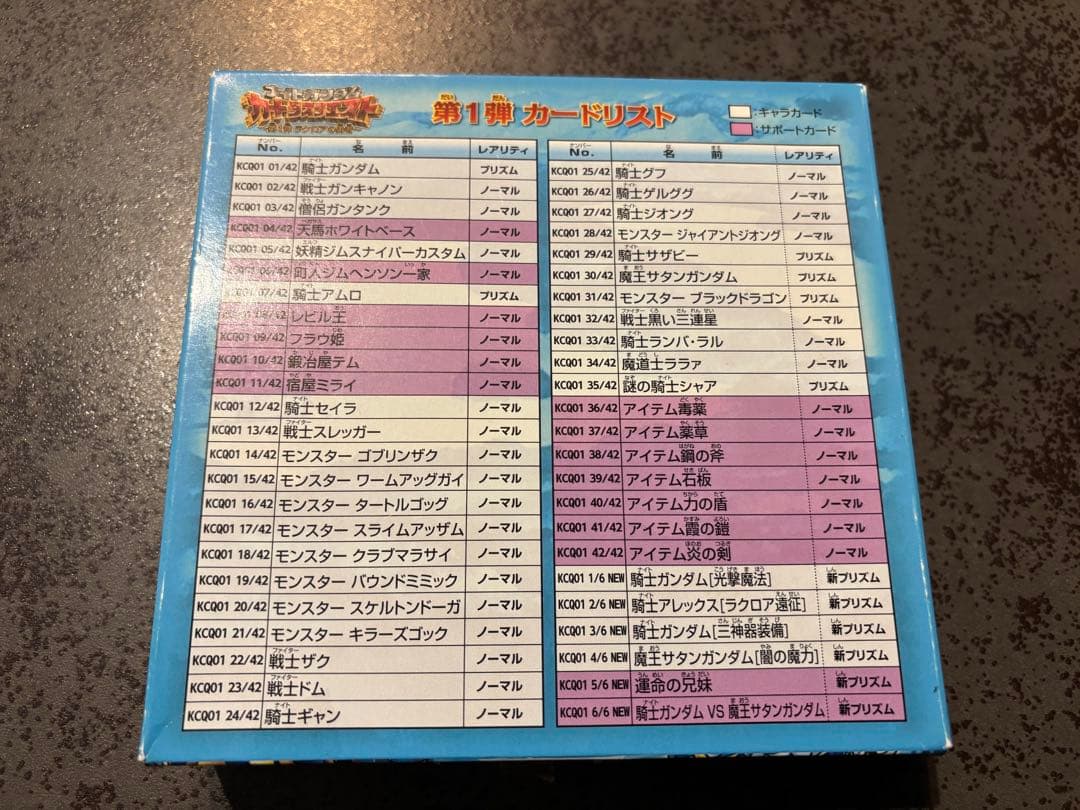 ナイトガンダム
カードダスクエスト
第1弾 ラクロアの勇者
第1弾 カードリスト
:キャラカード
:サポートカード
No. 名前 レアリティ
KCQ01 01/42 騎士ガンダム プリズム
KCQ01 02/42 戦士ガンキャノン ノーマル
KCQ01 03/42 僧侶ガンタンク ノーマル
KCQ01 04/42 天馬ホワイトベース ノーマル
KCQ01 05/42 妖精ジムスナイパーカスタム ノーマル
KCQ01 06/42 町人ジムヘンソン一家 ノーマル
KCQ01 07/42 騎士アムロ プリズム
KCQ01 08/42 レビル王 ノーマル
KCQ01 09/42 フラウ姫 ノーマル
KCQ01 10/42 鍛冶屋テム ノーマル
KCQ01 11/42 宿屋ミライ ノーマル
KCQ01 12/42 騎士セイラ ノーマル
KCQ01 13/42 戦士スレッガー ノーマル
KCQ01 14/42 モンスター ゴブリンザク ノーマル
KCQ01 15/42 モンスター ワームアッグガイ ノーマル
KCQ01 16/42 モンスター タートルゴッグ ノーマル
KCQ01 17/42 モンスター スライムアッザム ノーマル
KCQ01 18/42 モンスター クラブマラサイ ノーマル
KCQ01 19/42 モンスター バウンドミミック ノーマル
KCQ01 20/42 モンスター スケルトンドーガ ノーマル
KCQ01 21/42 モンスター キラーズゴック ノーマル
KCQ01 22/42 戦士ザク ノーマル
KCQ01 23/42 戦士ドム ノーマル
KCQ01 24/42 騎士ギャン ノーマル
No. 名前 レアリティ
KCQ01 25/42 騎士グフ ノーマル
KCQ01 26/42 騎士ゲルググ ノーマル
KCQ01 27/42 騎士ジオング ノーマル
KCQ01 28/42 モンスター ジャイアントジオング ノーマル
KCQ01 29/42 騎士サザビー プリズム
KCQ01 30/42 魔王サタンガンダム プリズム
KCQ01 31/42 モンスター ブラックドラゴン プリズム
KCQ01 32/42 戦士黒い三連星 ノーマル
KCQ01 33/42 騎士ランバ・ラル ノーマル
KCQ01 34/42 魔道士ララァ ノーマル
KCQ01 35/42 謎の騎士シャア プリズム
KCQ01 36/42 アイテム毒薬 ノーマル
KCQ01 37/42 アイテム薬草 ノーマル
KCQ01 38/42 アイテム鋼の斧 ノーマル
KCQ01 39/42 アイテム石板 ノーマル
KCQ01 40/42 アイテム力の盾 ノーマル
KCQ01 41/42 アイテム霞の鎧 ノーマル
KCQ01 42/42 アイテム炎の剣 ノーマル
KCQ01 1/6 NEW 騎士ガンダム[光撃魔法] 新プリズム
KCQ01 2/6 NEW 騎士アレックス[ラクロア遠征] 新プリズム
KCQ01 3/6 NEW 騎士ガンダム[三神器装備] 新プリズム
KCQ01 4/6 NEW 魔王サタンガンダム[闇の魔力] 新プリズム
KCQ01 5/6 NEW 運命の兄妹 新プリズム
KCQ01 6/6 NEW 騎士ガンダム VS 魔王サタンガンダム 新プリズム